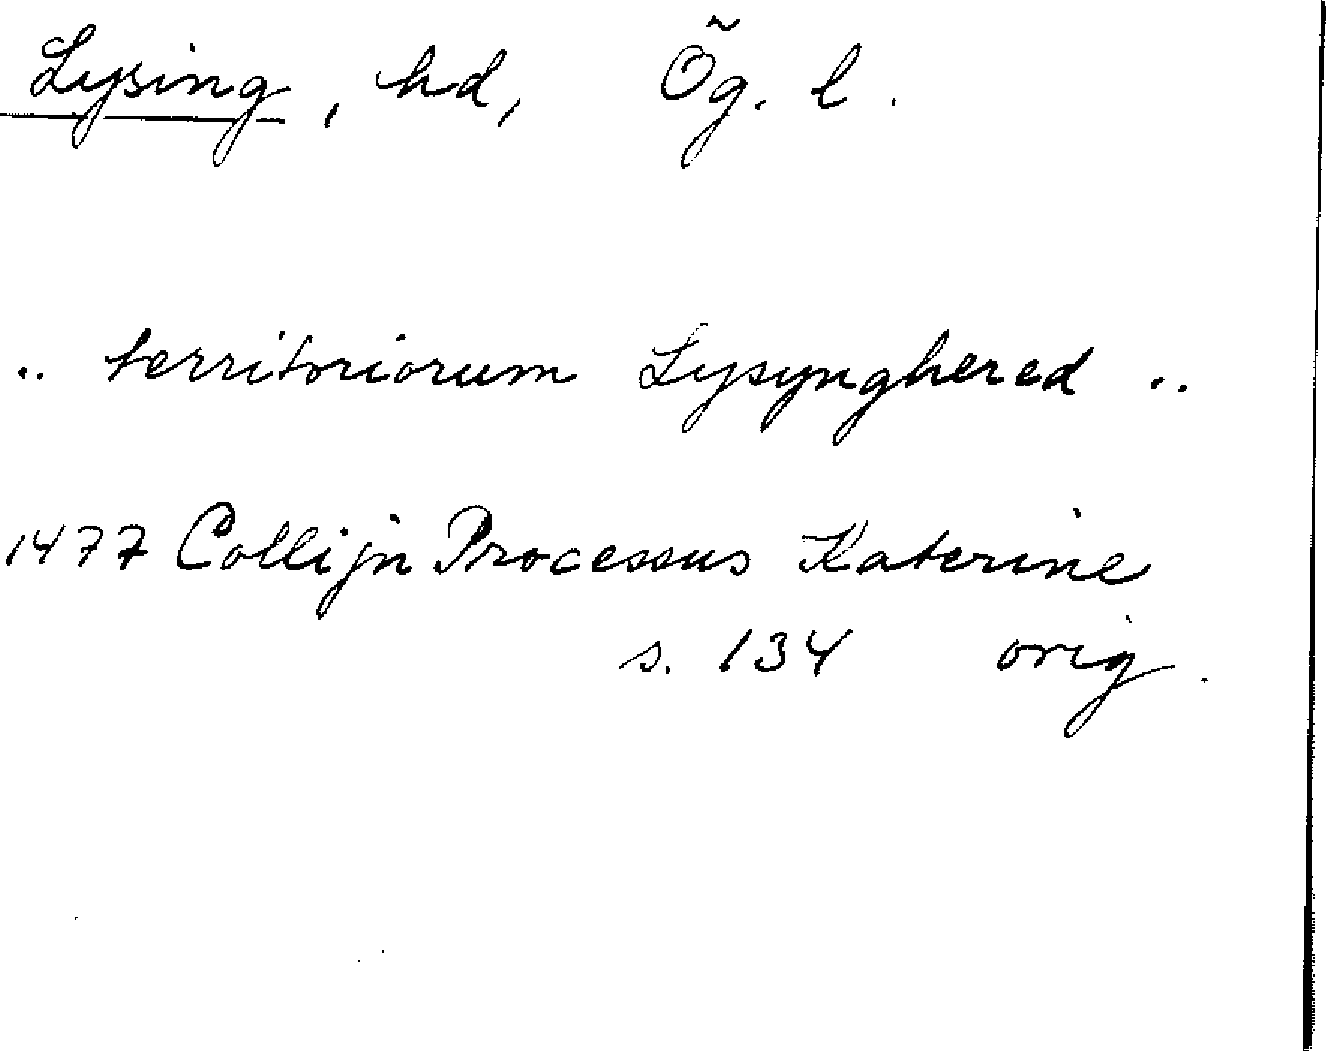 Lysing, hd, Õg. l.
.. territoriorum Lysynghered ..
1477 Collijn Processus Katerine
s. 134 orig.